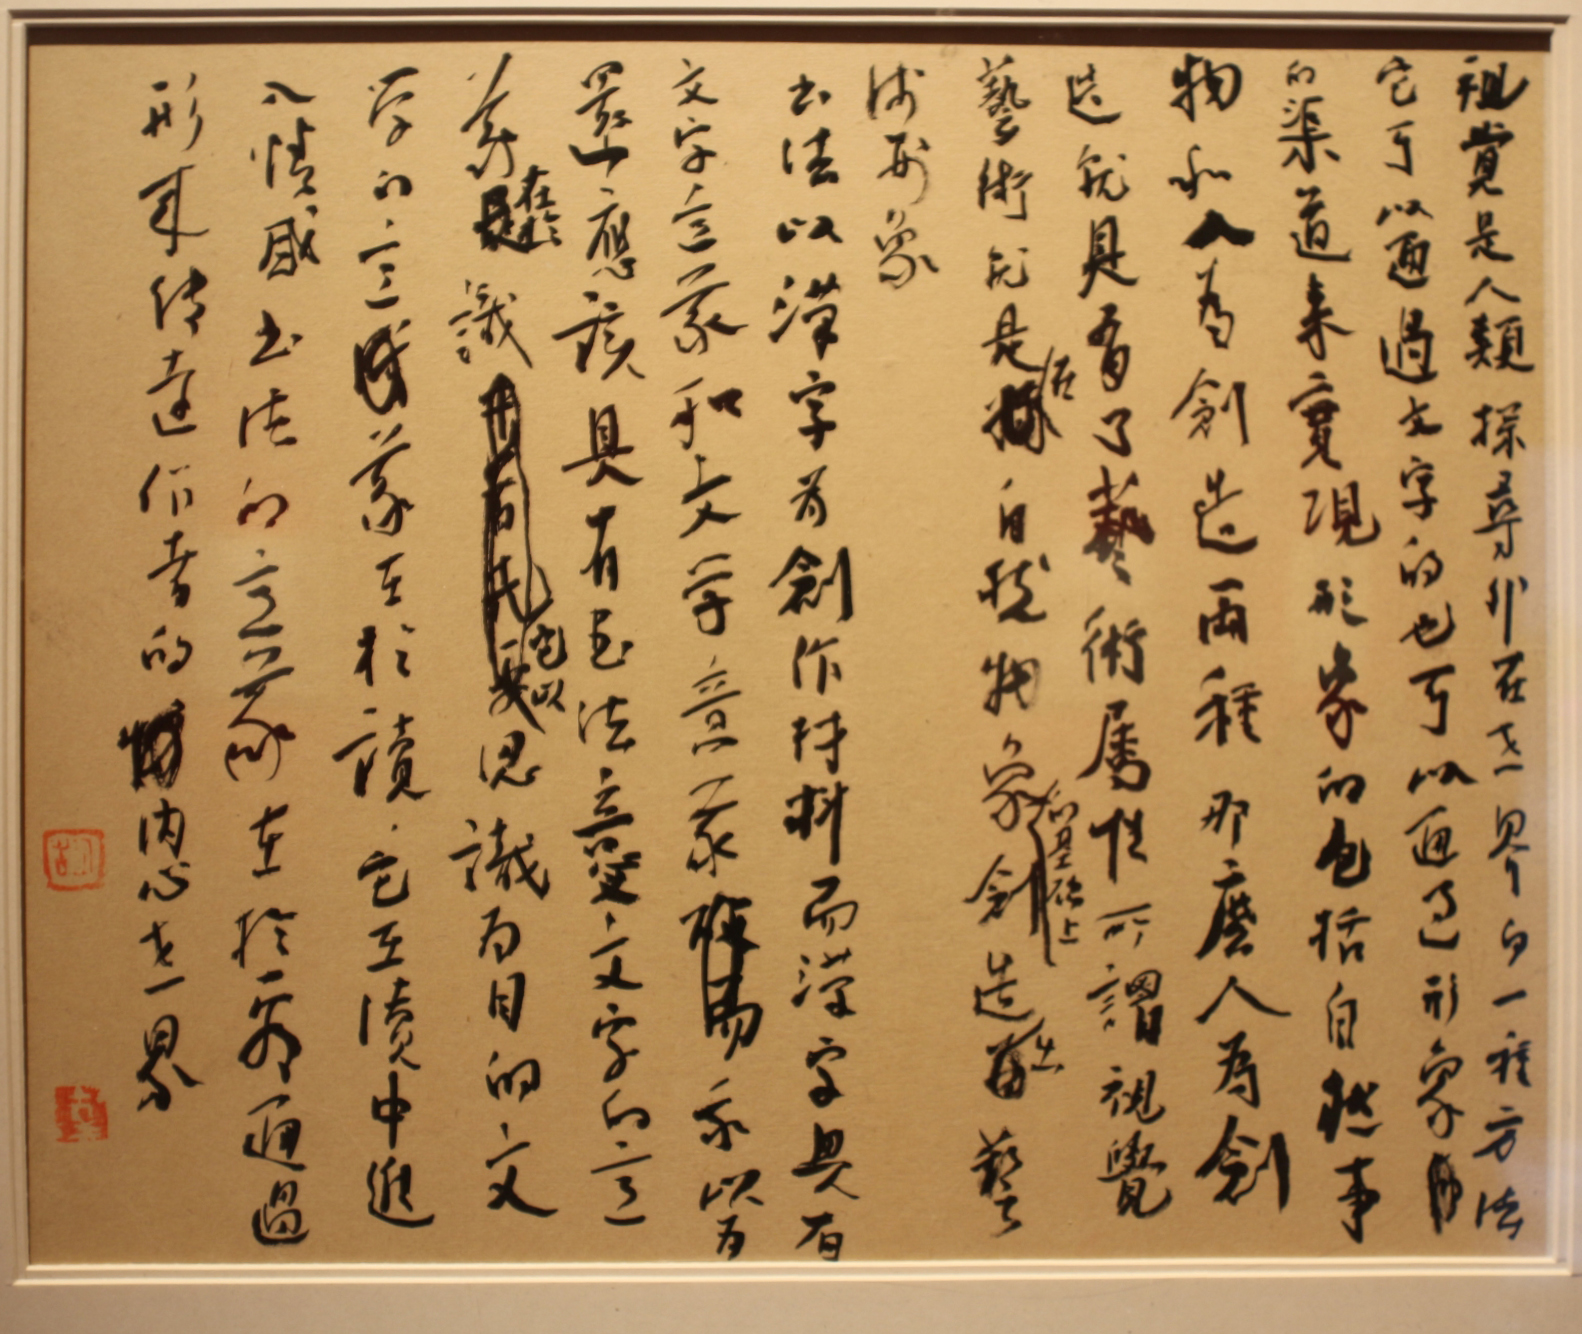 視覺是人類探尋外在世界的一種方法
它可以通過文字的也可以通過形象
的渠道来實現形象的包括自然事
物和人為創造兩種那麼人為創
造就具有了藝術屬性所謂視覺
藝術就是在自然物象的基础上創造出藝
術形象
書法以漢字为創作材料而漢字具有
文字意象和文學意象我以为
還應該具有書法意象文字的意
象在於識它以思識为目的文
学的意象在於讀它在讀中進
入情感書法的意象在於看通過
形来传達作者的内心世界